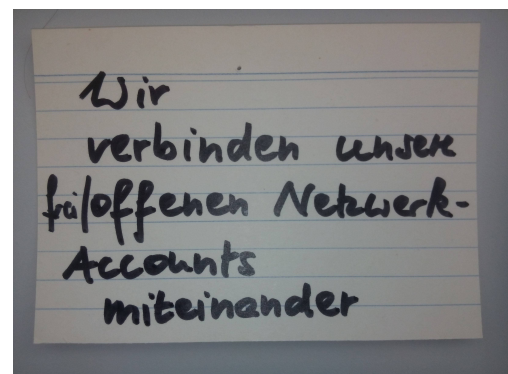 Wir
verbinden unsere
frei/offenen Netzwerk-
Accounts
miteinander